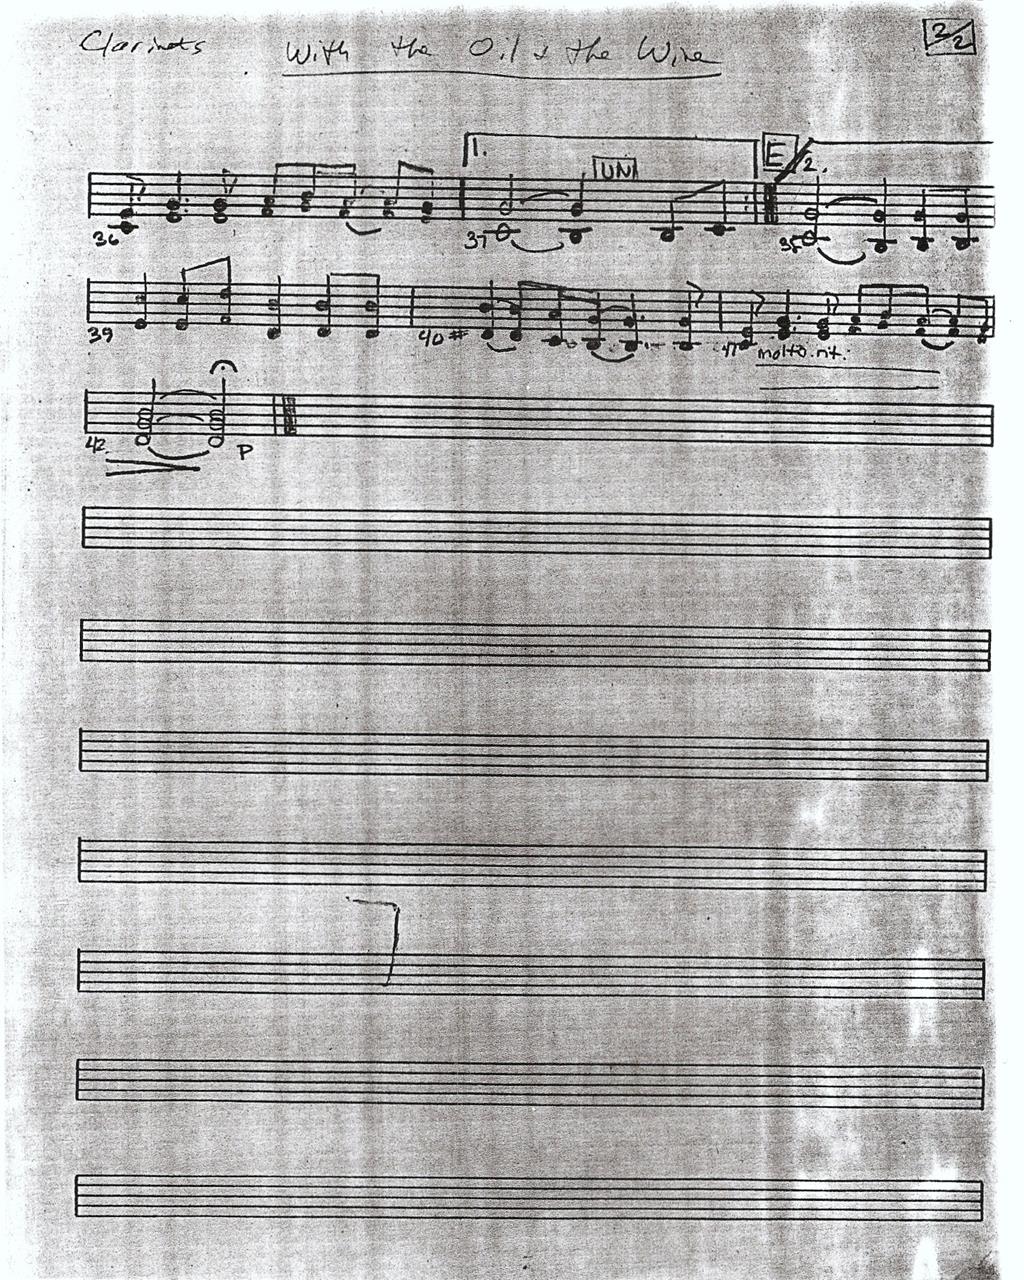 Clarinets With the Oil & the Wine 2/2
1. E 2.
UNI
36 37 38
39 40 41
molto rit.
42 P